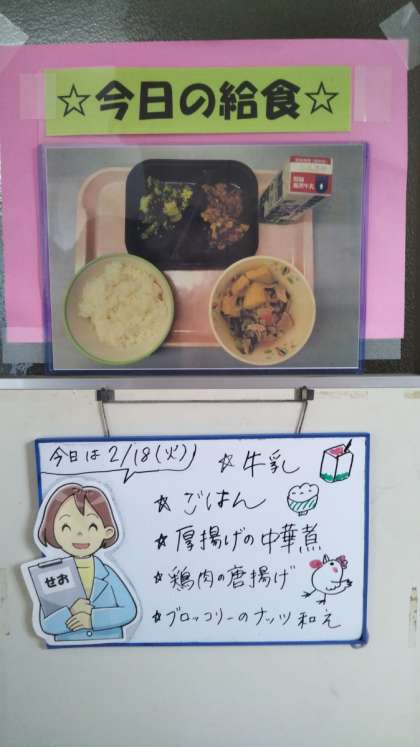 ☆今日の給食☆
今日は2/18(火)
☆牛乳
☆ごはん
☆厚揚げの中華煮
☆鶏肉の唐揚げ
☆ブロッコリーのナッツ和え
せお